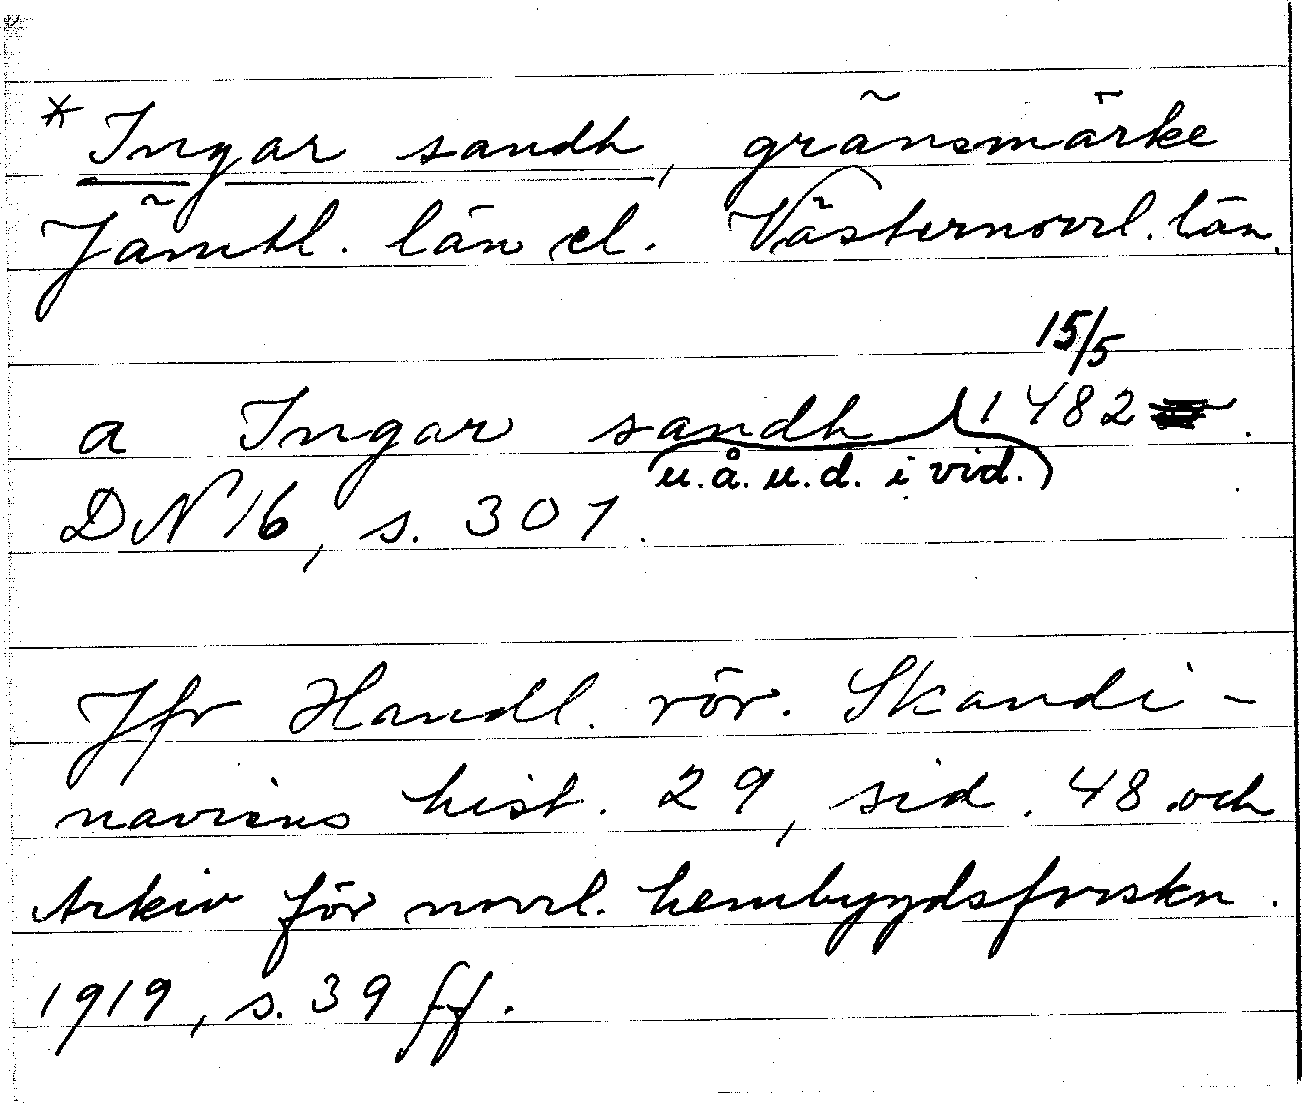 * Ingar sandh, gränsmärke
Jämtl. län el. Västernorrl. län.
a Ingar sandh (u.å.u.d. i vid.) 15/5 1482.
DN 16, s. 301.
Jfr Handl. rör. Skandi-
naviens hist. 29, sid. 48 och
Arkiv för norrl. hembygdsforskn.
1919, s. 39 ff.